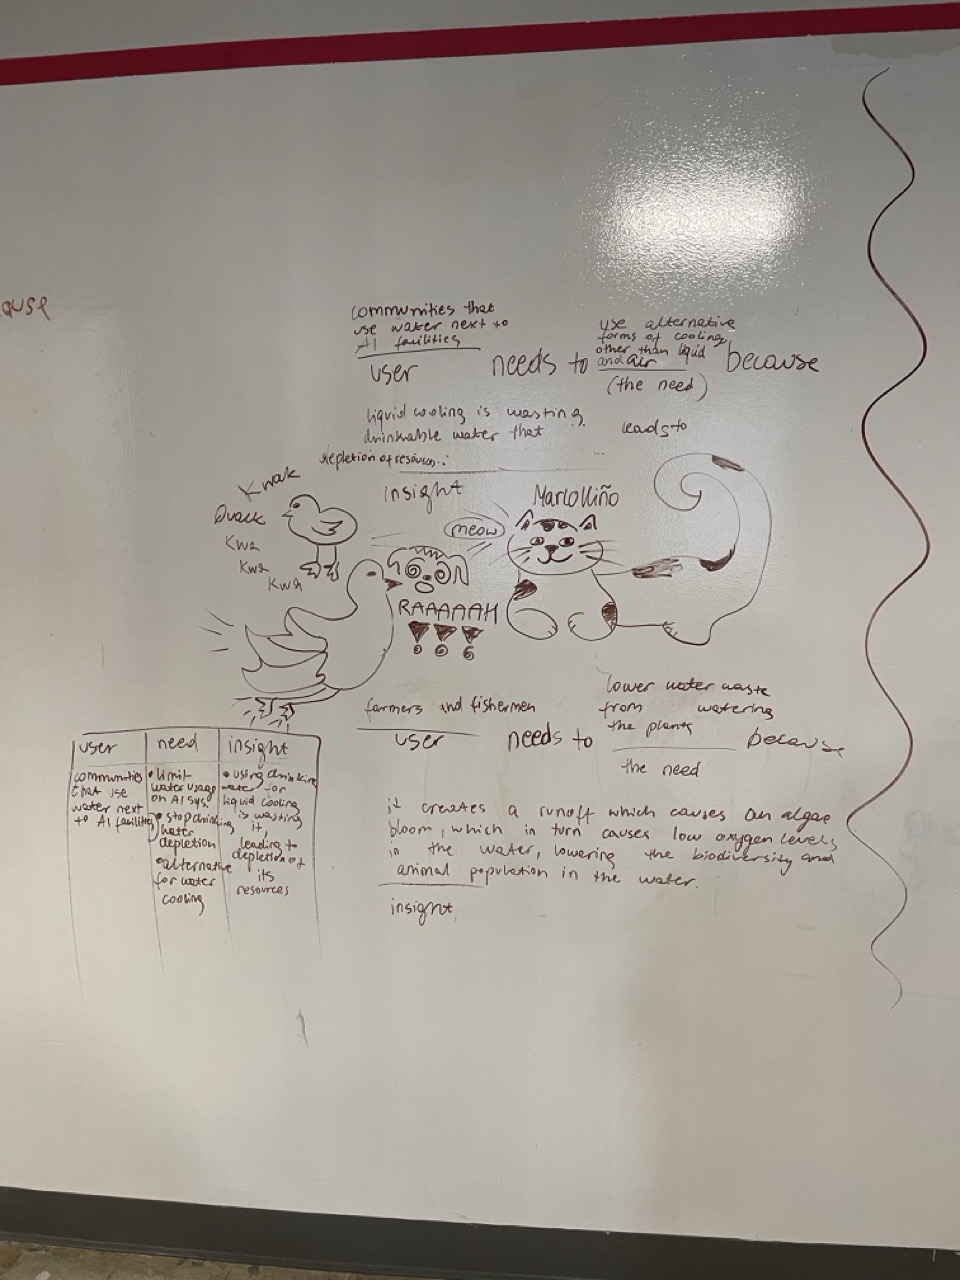 ause
communities that
use water next to
AI facilities
user
needs to
use alternative
forms of cooling
other than liquid
and air
(the need)
because
liquid cooling is wasting
drinkable water that
leads to
depletion of resources..
insight
Kwak
Quack
Kwa
Kwa
Kwa
meow
RAAAAAH
farmers and fishermen
user
needs to
lower water waste
from watering
the plants
the need
because
it creates a runoff which causes an algae
bloom, which in turn causes low oxygen levels
in the water, lowering the biodiversity and
animal population in the water.
insight
user
need
insight
communities
that use
water next
to AI facility
• limit
water usage
on AI sys.
• stop drinking
water
depletion
• alternative
for water
cooling
• using drinking
water for
liquid cooling
is wasting
it,
leading to
depletion of
its
resources